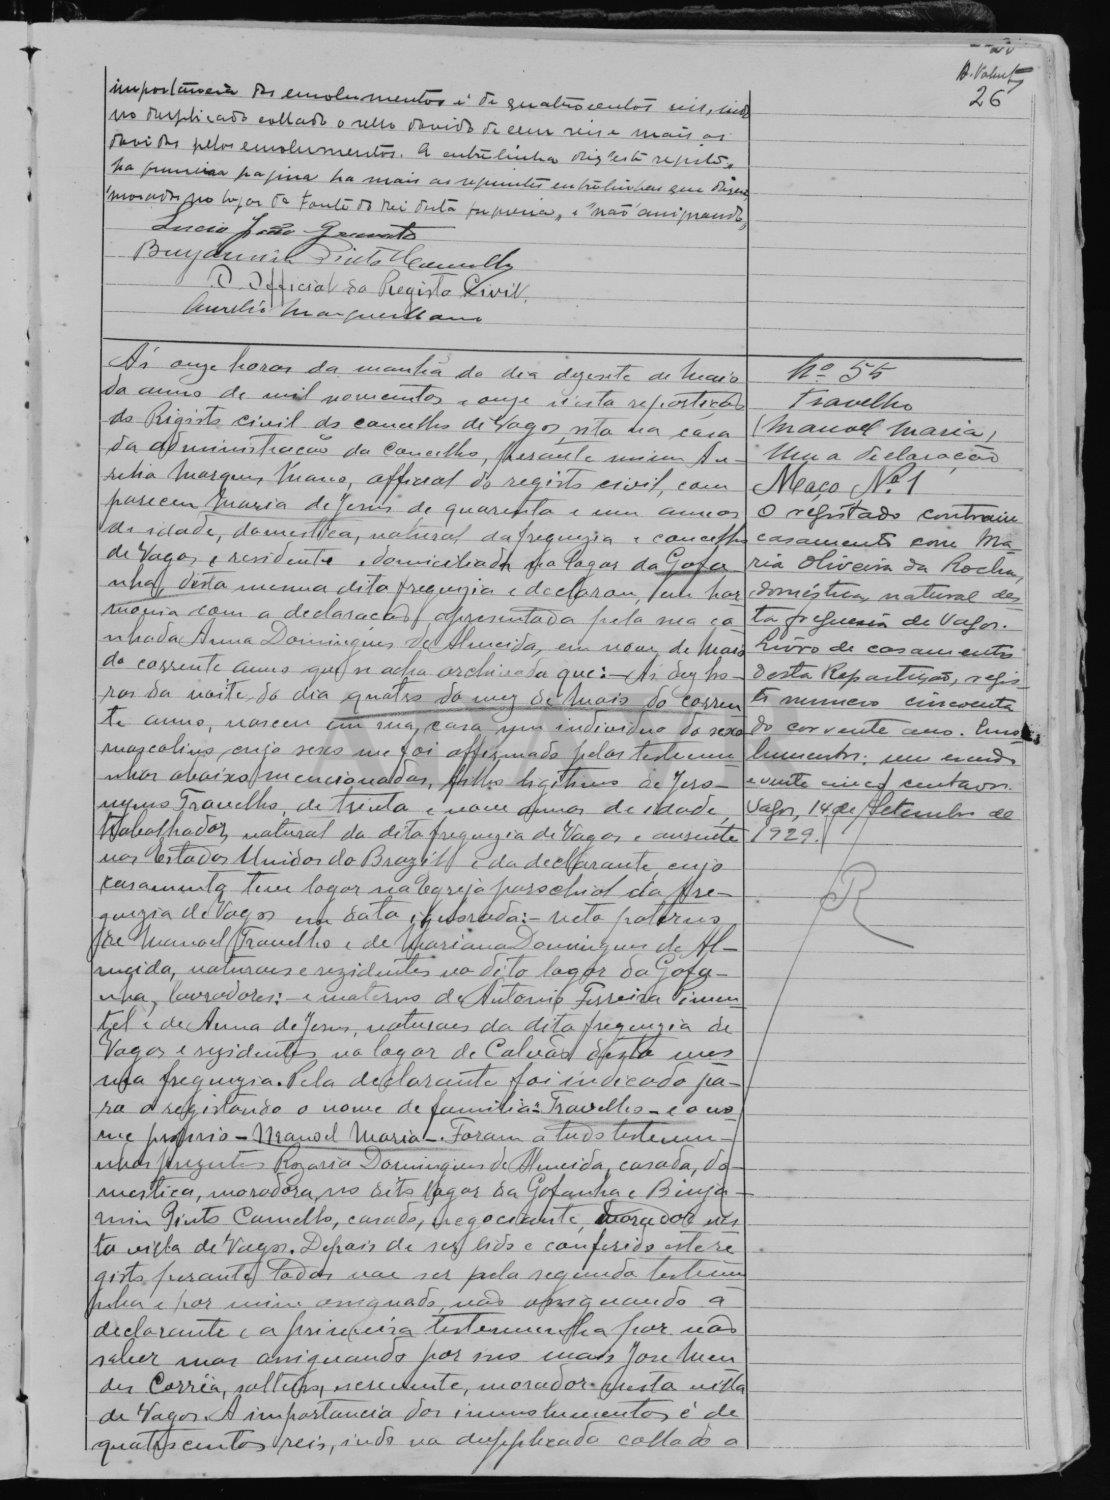 A. Valente
26
importancia dos emolumentos é de quatrocentos reis, indo
no duplicado collado o sello devido de cem reis e mais os
devidos pelos emolumentos. A entrelinha diz "está
na primeira pagina ha mais as seguintes entrelinhas que dizem
"morador no logar da Fonte do Rei desta freguesia" e "não assignando"
Lucio João Gravato
Benjamim Pinto Camello
O Official do Registo Civil,
Aurelio Marques Mano
Ás onze horas da manhã do dia dezesete de Maio
do anno de mil novecentos e onze n'esta repartição
do Registo civil do concelho de Vagos, sita na casa
da administração do Concelho, perante mim Au-
relio Marques Mano, official do registo civil, com
pareceu Maria de Jesus de quarenta e um annos
de idade, domestica, natural da freguezia e concelho
de Vagos e residente e domiciliada no logar da Gafa-
nha, desta mesma dita freguezia e declarou, em har
monia com a declaração, apresentada pela sua cu
nhada Anna Domingues de Almeida, em nove de Maio
do corrente anno que se acha archivada que:- Ás dez ho-
ras da noite do dia quatro do mez de Maio do corren
te anno, nasceu em sua casa um individuo do sexo
masculino cujo sexo me foi affirmado pelas testemu-
nhas abaixo mencionadas, filho legitimo de Jero-
nymo Travelho, de trinta e nove annos de idade,
trabalhador, natural da dita freguezia de Vagos e ausente
nos Estados Unidos do Brazil e da declarante, cujo
casamento teve logar na Egreja parochial da fre-
guezia de Vagos em data ignorada:- neto paterno
de Manoel Travelho e de Mariana Domingues de Al-
meida, naturaes e rezidentes no dito logar da Gafa-
nha, lavradores:- e materno de Antonio Ferreira Pimen
tel e de Anna de Jesus, naturaes da dita freguezia de
Vagos e rezidentes no logar de Calvão desta mes
ma freguezia. Pela declarante foi indicado pa-
ra o registando o nome de familia:- Travelho - e o no-
me proprio - Manoel Maria -. Foram a tudo testemu-
nhas prezentes Rozaria Domingues de Almeida, casada, do-
mestica, moradora, no dito logar da Gafanha e Binja-
mim Pinto Camello, casado, negociante, morador nes
ta villa de Vagos. Depois de ser lido e conferido este re
gisto perante todos vae ser pela segunda testemu
nha e por mim assignado, não assignando a
declarante e a primeira testemunha por não
saber mas assignando por isso mais José Men
des Corrêa, solteiro, escrevente, morador nesta villa
de Vagos. A importancia dos emolumentos é de
quatrocentos reis, indo no duplicado collado o
Nº 55
Travelho
(Manoel Maria)
Uma declaração
Maço Nº 1
O registado contraiu
casamento com Ma-
ria Oliveira da Rocha,
doméstica, natural des-
ta freguesia de Vagos.
Livro de casamentos
desta Repartição, regis-
to numero cincoenta
do corrente ano. Emo-
lumentos: um escudo
e vinte cinco centavos.
Vagos, 14 de Setembro de
1929.
R